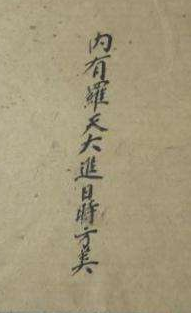 内有羅天大進日時方美